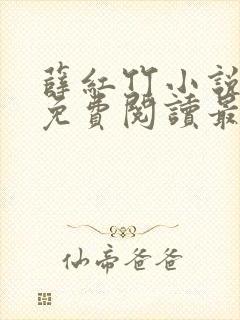 薛紅竹小說
免費閱讀最
仙帝爸爸